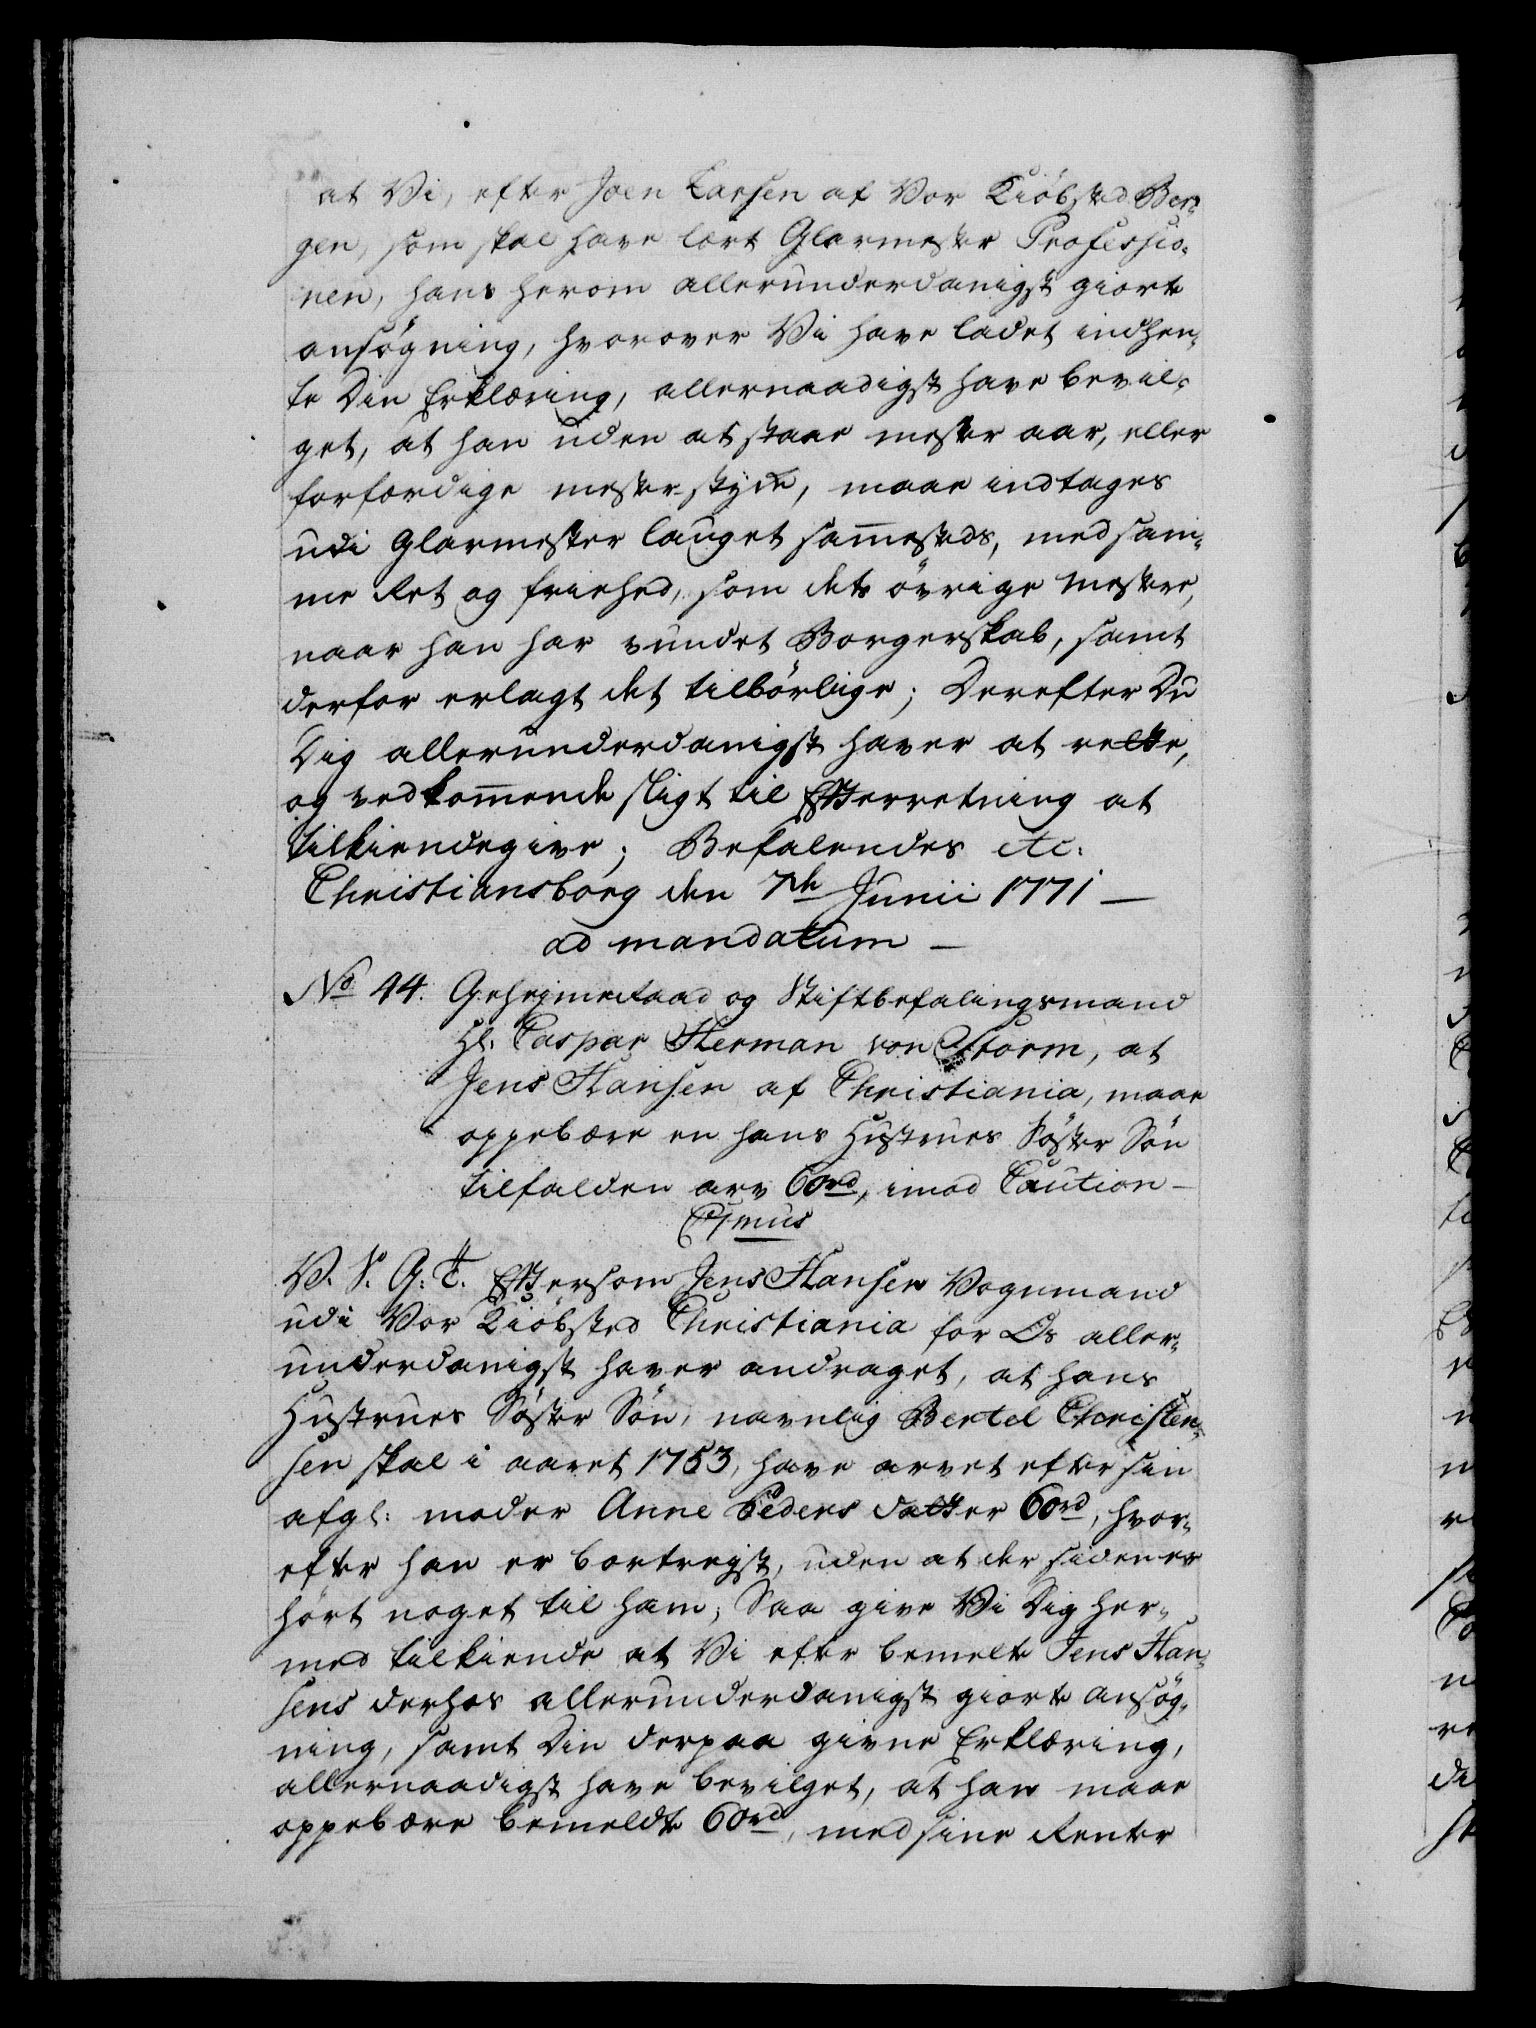 at Vi, efter Joen Larsen af Vor Kiöbsted Ber-
gen, som skal have lært Glarmester Professio-
nen, hans herom allerunderdanigst giorte
ansøgning, hvorover Vi have ladet indhen-
te Din Erklæring, allernaadigst have bevil-
get, at han uden at staae mester aar, eller
forfærdige mester-stykke, maae indtages
udi Glarmester lauget sam̄esteds, med sam-
me Ret og friehed, som dets övrige Mestere,
naar han har vundet Borgerskab, samt
derfor erlagt det tilbörlige; Derefter Du
Dig allerunderdanigst haver at rette,
og vedkom̄ende sligt til Efterretning at
tilkiendegive; Befalendes etc:
Christiansborg den 7de Junii 1771 —
ad mandatum —
No 44. Geheimeraad og Stiftbefalingsmand
Hl. Caspar Herman von Storm, at
Jens Hansen af Christiania, maae
oppebære en hans Hustrues Söster Sön
tilfalden arv 60rd, imod Caution —
C7mus
V. S. G. T. Eftersom Jens Hansen Vognmand
udi Vor Kiöbsted Christiania for Os aller-
underdanigst haver andraget, at hans
Hustrues Söster Sön, navnlig Bertel Christen-
sen skal i aaret 1753, have arvet efter sin
afgl: moder Anne Peders datter 60rd, hvor-
efter han er bortreyst, uden at der siden er
hört noget til ham; Saa give Vi Dig her-
med tilkiende at Vi efter bemelte Jens Han-
sens derhos allerunderdanigst giorte ansøg-
ning, samt Din derpaa givne Erklæring,
allernaadigst have bevilget, at han maae
oppebære bemeldte 60rd, med sine Renter